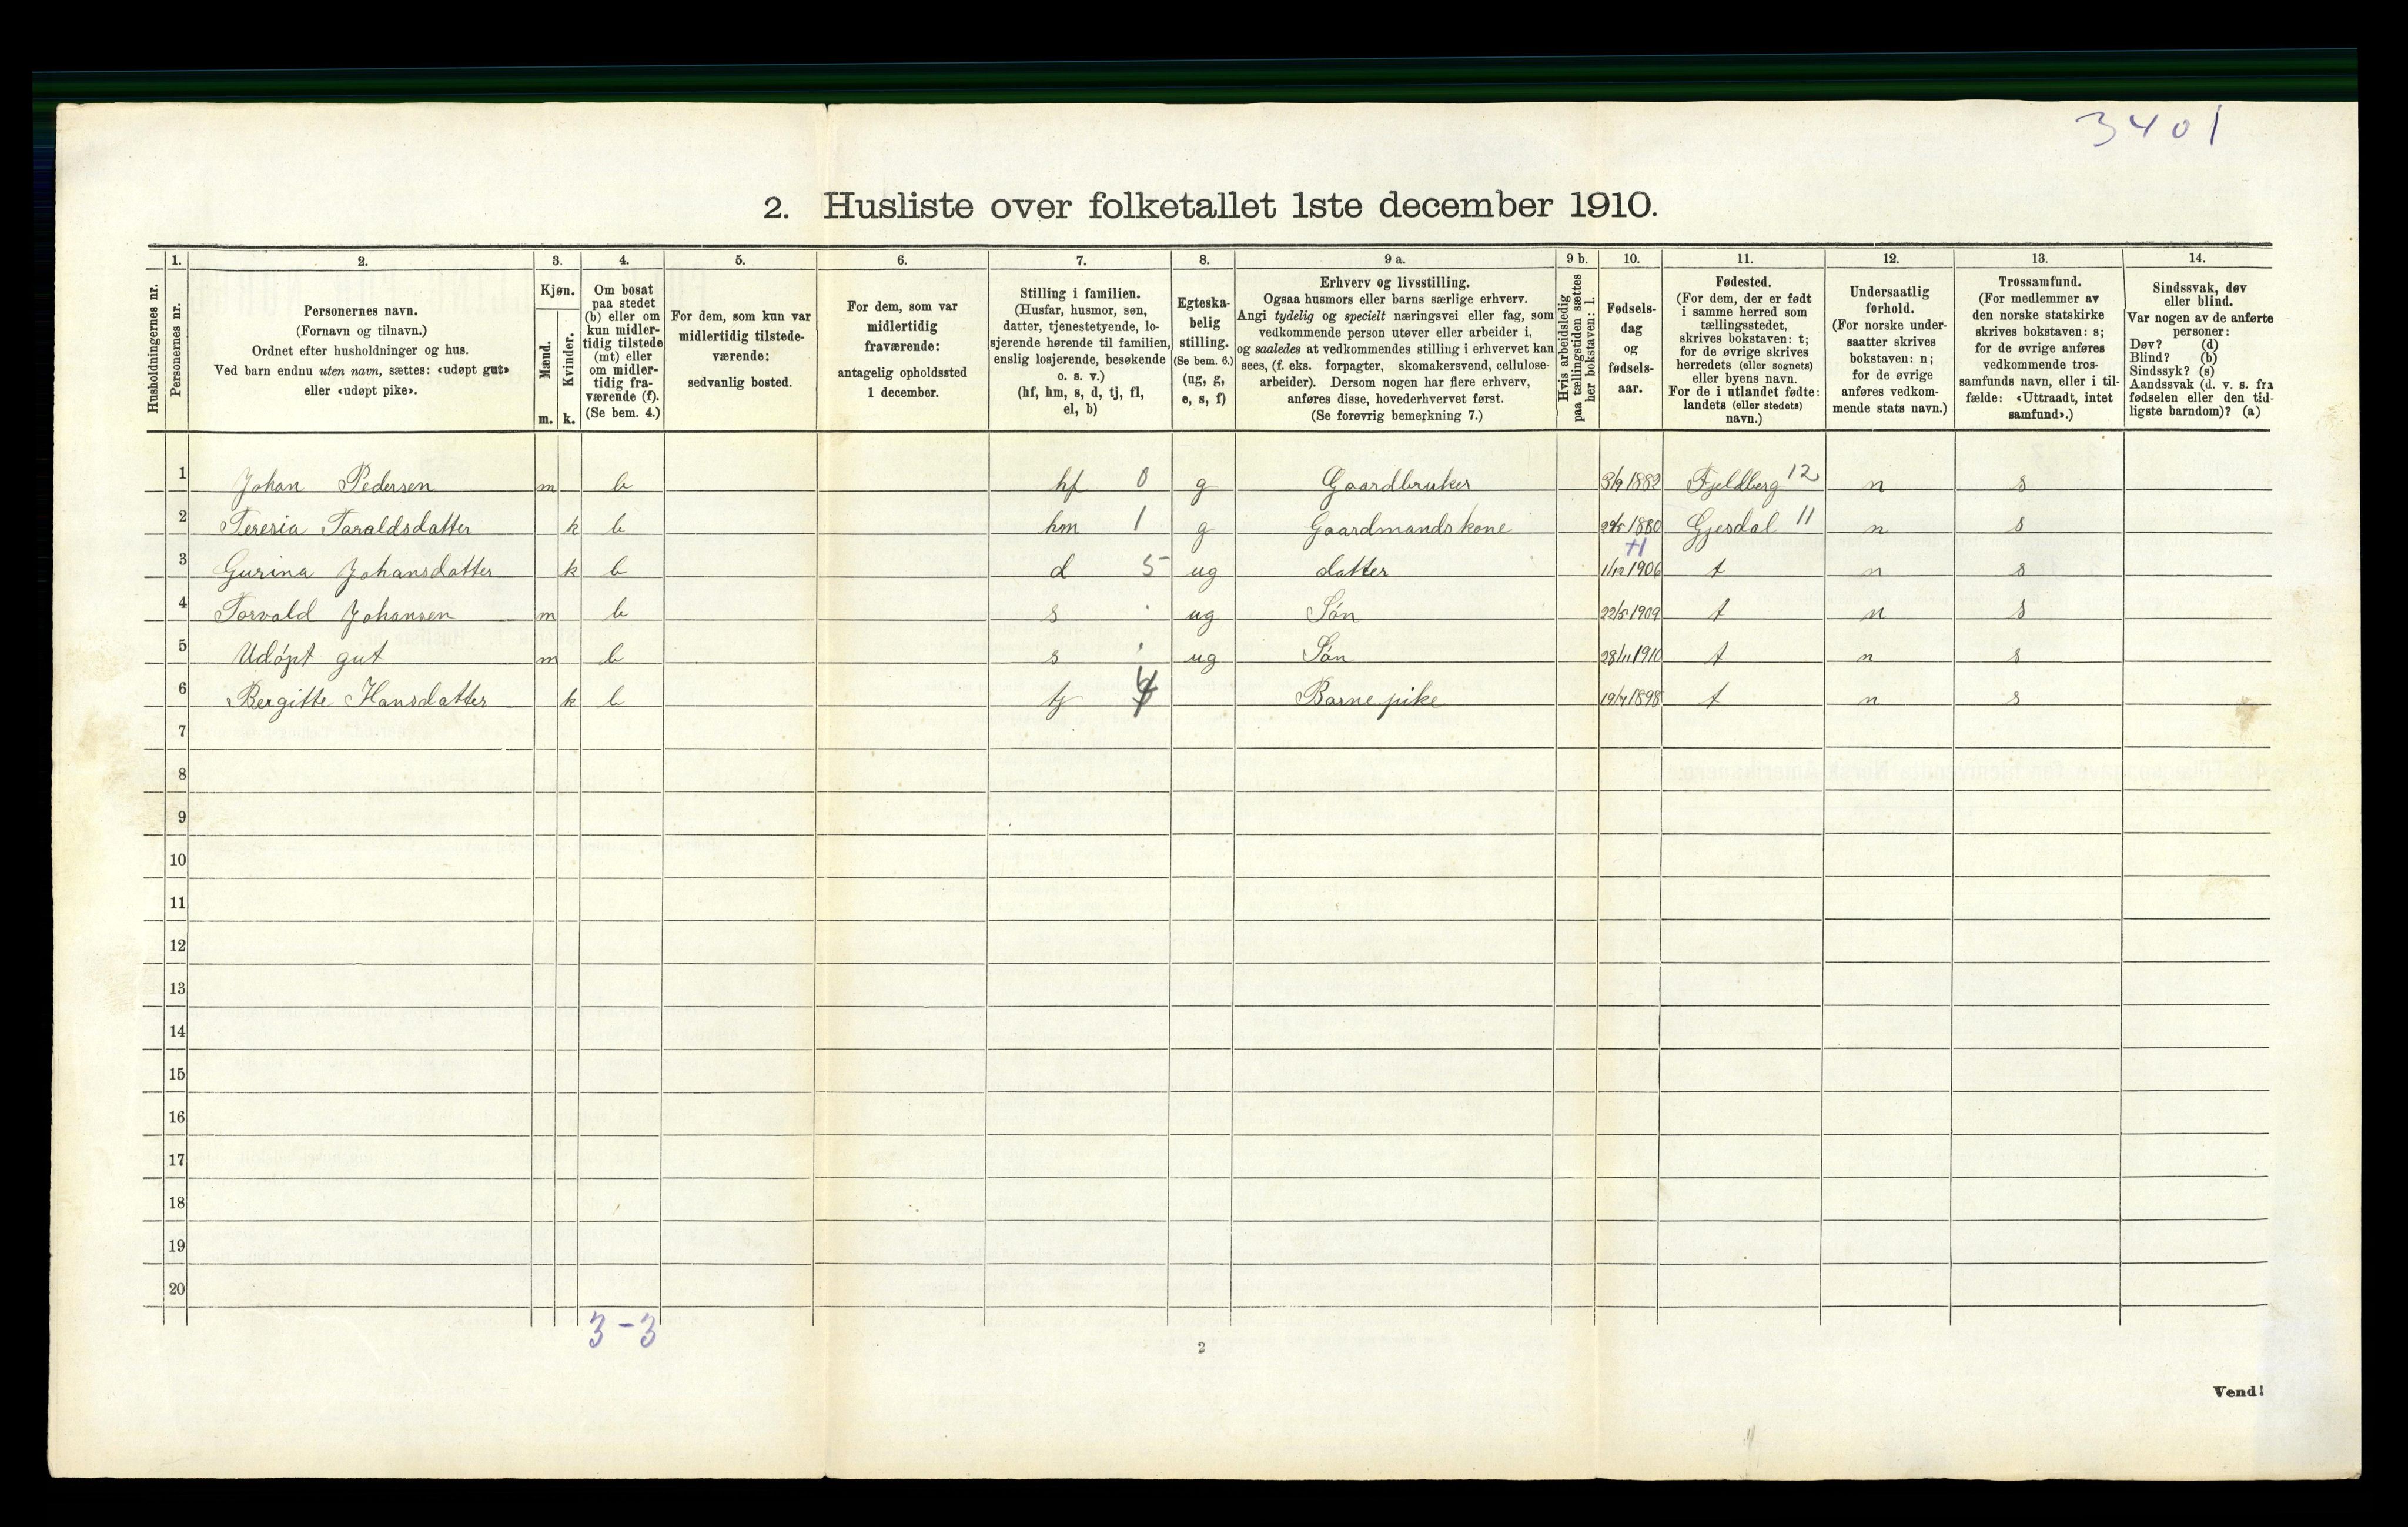 3401
2. Husliste over folketallet 1ste december 1910.
Husholdningernes nr.
1.
Personernes nr.
2.
Personernes navn.
(Fornavn og tilnavn.)
Ordnet efter husholdninger og hus.
Ved barn endnu uten navn, sættes: «udøpt gut»
eller «udøpt pike».
3.
Kjøn.
Mænd.
Kvinder.
m. k.
4.
Om bosat
paa stedet
(b) eller om
kun midler-
tidig tilstede
(mt) eller
om midler-
tidig fra-
værende (f).
(Se bem. 4.)
5.
For dem, som kun var
midlertidig tilstede-
værende:
sedvanlig bosted.
6.
For dem, som var
midlertidig
fraværende:
antagelig opholdssted
1 december.
7.
Stilling i familien.
(Husfar, husmor, søn,
datter, tjenestetyende, lo-
sjerende hørende til familien,
enslig losjerende, besøkende
o. s. v.)
(hf, hm, s, d, tj, fl,
el, b)
8.
Egteska-
belig
stilling.
(Se bem. 6.)
(ug, g,
e, s, f)
9 a.
Erhverv og livsstilling.
Ogsaa husmors eller barns særlige erhverv.
Angi tydelig og specielt næringsvei eller fag, som
vedkommende person utøver eller arbeider i,
og saaledes at vedkommendes stilling i erhvervet kan
sees, (f. eks. forpagter, skomakersvend, cellulose-
arbeider). Dersom nogen har flere erhverv,
anføres disse, hovederhvervet først.
(Se forøvrig bemerkning 7.)
9 b.
Hvis arbeidsledig
paa tællingstiden sættes
her bokstaven: l.
10.
Fødsels-
dag
og
fødsels-
aar.
11.
Fødested.
(For dem, der er født
i samme herred som
tællingsstedet,
skrives bokstaven: t;
for de øvrige skrives
herredets (eller sognets)
eller byens navn.
For de i utlandet fødte:
landets (eller stedets)
navn.)
12.
Undersaatlig
forhold.
(For norske under-
saatter skrives
bokstaven: n;
for de øvrige
anføres vedkom-
mende stats navn.)
13.
Trossamfund.
(For medlemmer av
den norske statskirke
skrives bokstaven: s;
for de øvrige anføres
vedkommende tros-
samfunds navn, eller i til-
fælde: «Uttraadt, intet
samfund».)
14.
Sindssvak, døv
eller blind.
Var nogen av de anførte
personer:
Døv? (d)
Blind? (b)
Sindssyk? (s)
Aandssvak (d. v. s. fra
fødselen eller den tid-
ligste barndom)? (a)
1 Johan Pedersen m b hf 0 g Gaardbruker 3/9 1882 Fjeldberg 12 n s
2 Teresia Taraldsdatter k b hm 1 g Gaardmandskone 1880 Gjesdal 11 n s
+1
3 Gurina Johansdatter k b d 5 ug datter 1/12 1906 t n s
4 Torvald Johansen m b s ug Søn 22/5 1909 t n s
5 Udøpt gut m b s ug Søn 28/11 1910 t n s
6 Bergitte Hansdatter k b tj Barnepike 1898 t n s
7
8
9
10
11
12
13
14
15
16
17
18
19
20
3-3
2
Vend!